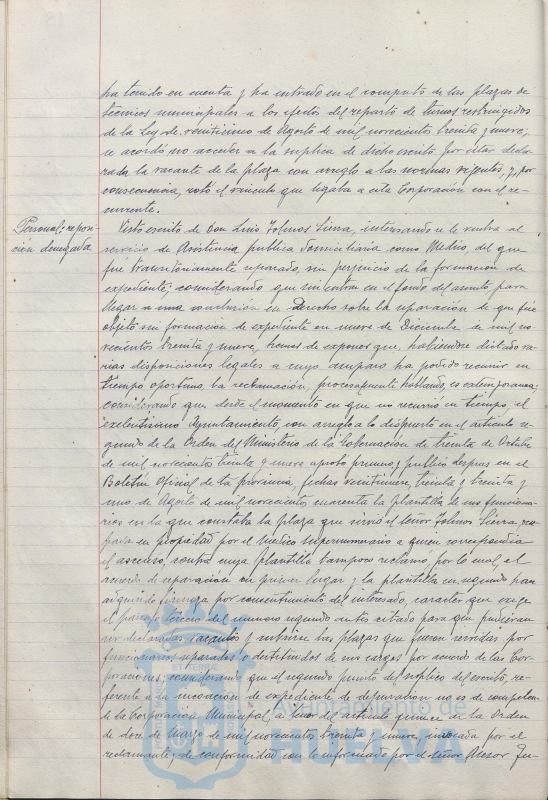 ha tenido en cuenta y ha entrado en el computo de las plazas de
tecnicos municipales a los efectos del reparto de turnos restringidos
de la Ley de veinticinco de Agosto de mil novecientos treinta y nueve,
se acordó no acceder a la suplica de dicho escrito por estar decla-
rada la vacante de la plaza con arreglo a las normas vigentes, y, por
consecuencia, roto el vinculo que ligaba a esta Corporación con el re-
currente.
Personal: reposi-
ción denegada
Visto escrito de Don Luis Tolinos Sierra, interesando se le vuelva al
servicio de Asistencia publica domiciliaria como Medico, del que
fue transitoriamente separado, sin perjuicio de la formación de
expediente; considerando que sin entrar en el fondo del asunto para
llegar a una conclusión en Derecho sobre la separación de que fue
objeto sin formación de expediente en nueve de Diciembre de mil no-
vecientos treinta y nueve, hemos de exponer que, habiendose dictado va-
rias disposiciones legales a cuyo amparo ha podido recurrir en
tiempo oportuno, la reclamación, procesalmente hablando, es extemporanea;
considerando que desde el momento en que no recurrió en tiempo, el
excelentisimo Ayuntamiento, con arreglo a lo dispuesto en el articulo se-
gundo de la Orden del Ministerio de la Gobernación de treinta de Octubre
de mil novecientos treinta y nueve aprobó primero y publicó despues en el
Boletin Oficial de la provincia, fechas veintinueve, treinta y treinta y
uno de Agosto de mil novecientos cuarenta la plantilla de sus funciona-
rios en la que constaba la plaza que sirvió el señor Tolinos Sierra, ocu-
pada en propiedad por el Medico supernumerario a quien correspondia
el ascenso, contra cuya plantilla tampoco reclamó, por lo cual, el
acuerdo de separación en primer lugar y la plantilla en segundo han
adquirido firmeza por consentimiento del interesado, caracter que exige
el parrafo tercero del numero segundo antes citado para que pudieran
ser declaradas vacantes y cubrirse las plazas que fueron servidas por
funcionarios separados o destituidos de sus cargos por acuerdo de las Cor-
poraciones; considerando que el segundo punto del suplico del escrito, re-
ferente a la incoación de expediente de depuración no es de competen-
cia la Corporación Municipal, a tenor del articulo quince de la Orden
de doce de Marzo de mil novecientos treinta y nueve, invocada por el
reclamante; de conformidad con lo informado por el señor Asesor Ju-
Ayuntamiento de
HUELVA